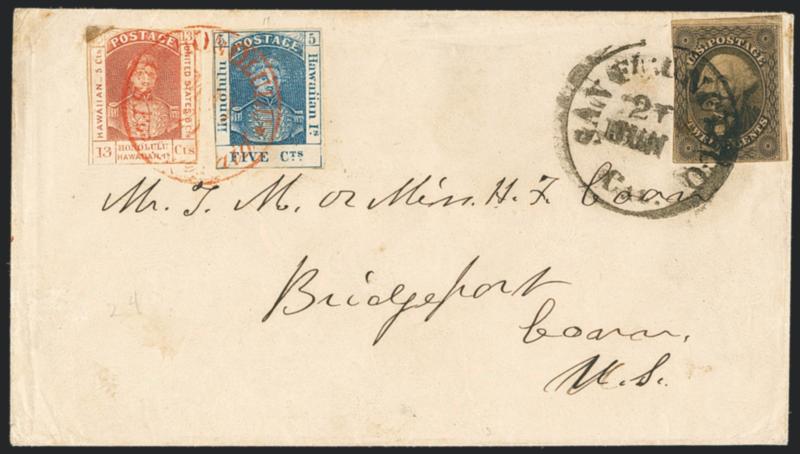 POSTAGE
13
HAWAIIAN 5 Cts
UNITED STATES 8 Cts
HONOLULU
HAWAIIAN Is
13 Cts
5 POSTAGE 5
Honolulu
Hawaiian Is.
FIVE CTS
U.S. POSTAGE
CENTS
SAN FRANCISCO
CAL.
Mr. T. M. or Miss. H. F. Coan
Bridgeport
Conn.
U.S.
24